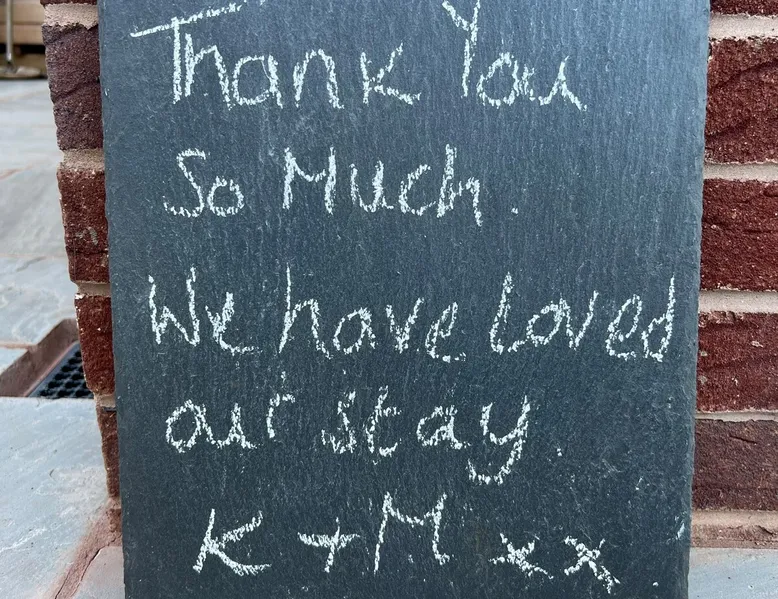 Thank You
So Much.
We have loved
our stay
K + M xx